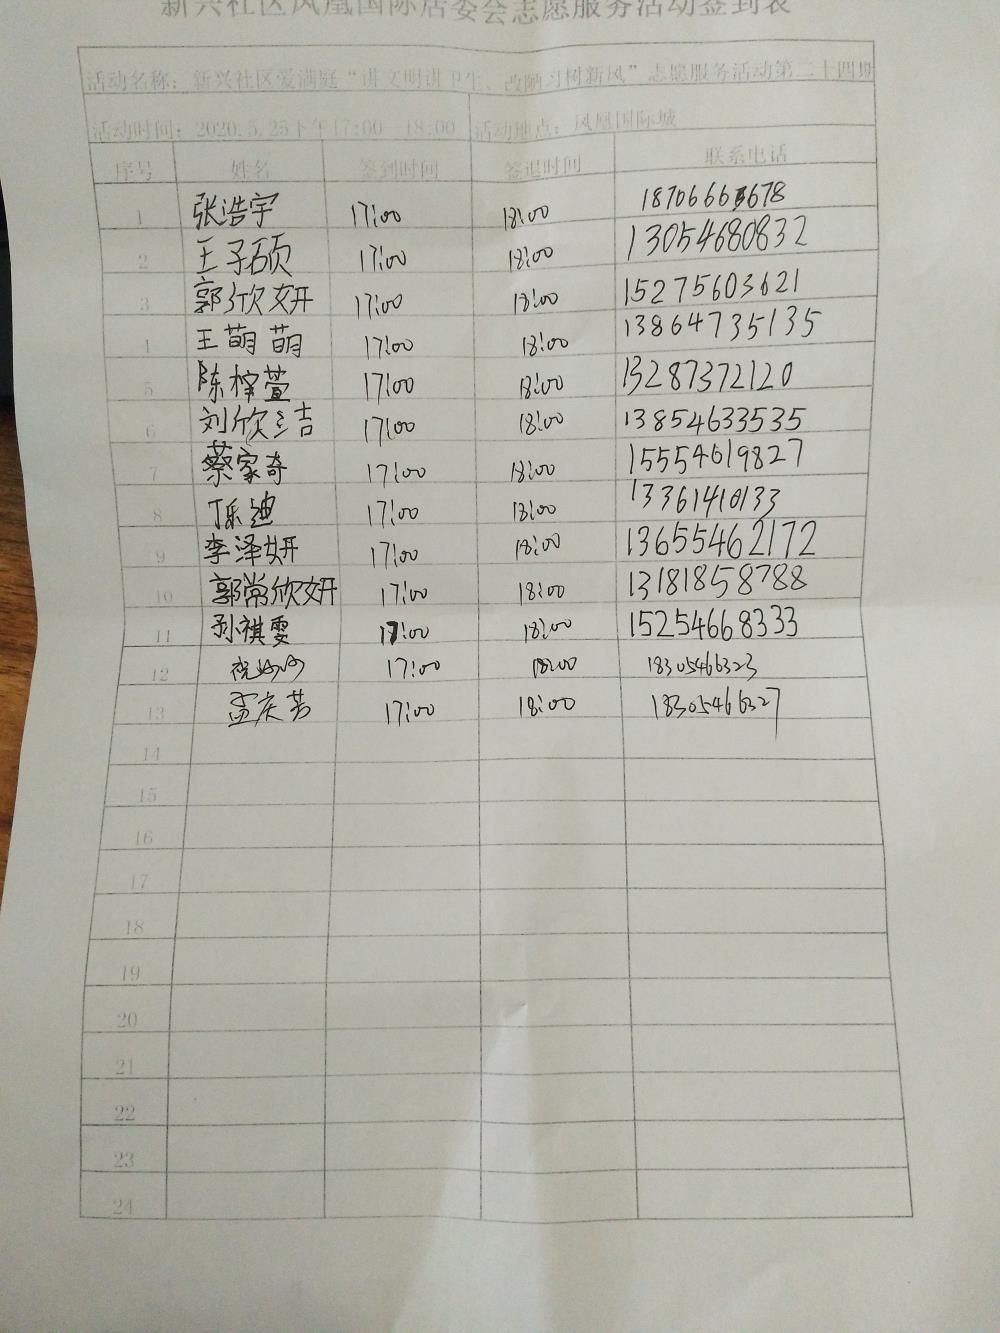 新兴社区凤凰国际居委会志愿服务活动签到表
活动名称：新兴社区爱满庭“讲文明讲卫生、改陋习树新风”志愿服务活动第二十四期
活动时间：2020.5.25下午17:00—18:00 活动地点：凤凰国际城
序号 姓名 签到时间 签退时间 联系电话
1 张浩宇 17:00 18:00
2 王子硕 17:00 18:00 13054680832
3 郭欣妍 17:00 18:00 15275603621
4 王萌萌 17:00 18:00 13864735135
5 陈梓萱 17:00 18:00 13287372120
6 刘欣 17:00 18:00 13854633535
7 蔡家奇 17:00 18:00 15554619827
8 丁乐迪 17:00 18:00 13361410133
9 李泽妍 17:00 18:00 13655462172
10 郭常欣妍 17:00 18:00 13181858788
11 孙祺雯 17:00 18:00 15254668333
12 17:00 18:00 18305466323
13 孟庆芳 17:00 18:00 18305466327
14
15
16
17
18
19
20
21
22
23
24